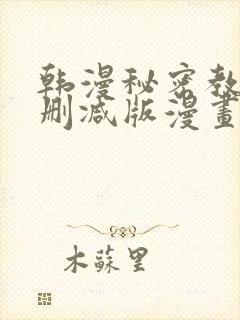 韩漫秘密教
删减版漫畫
木蘇里